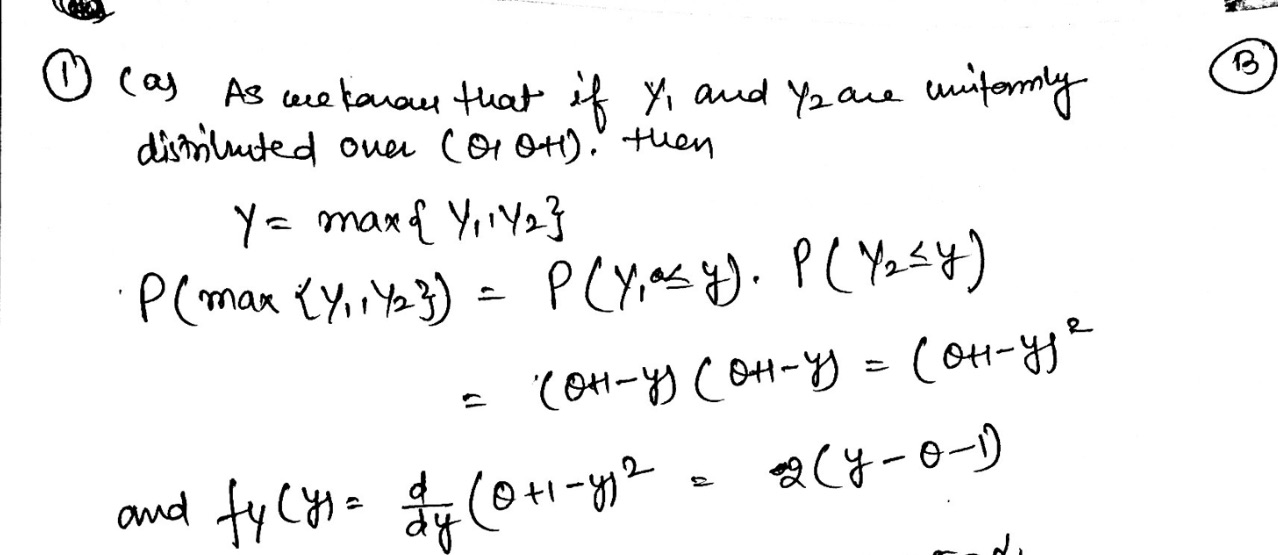 ① (a) As we know that if Y₁ and Y₂ are uniformly Ⓑ
distributed over (θ, θ+1). then
Y = max{Y₁, Y₂}
P(max{Y₁, Y₂}) = P(Y₁ ≤ y). P(Y₂ ≤ y)
= (θ+1-y)(θ+1-y) = (θ+1-y)²
and fy(y) = d/dy (θ+1-y)² = 2(y-θ-1)